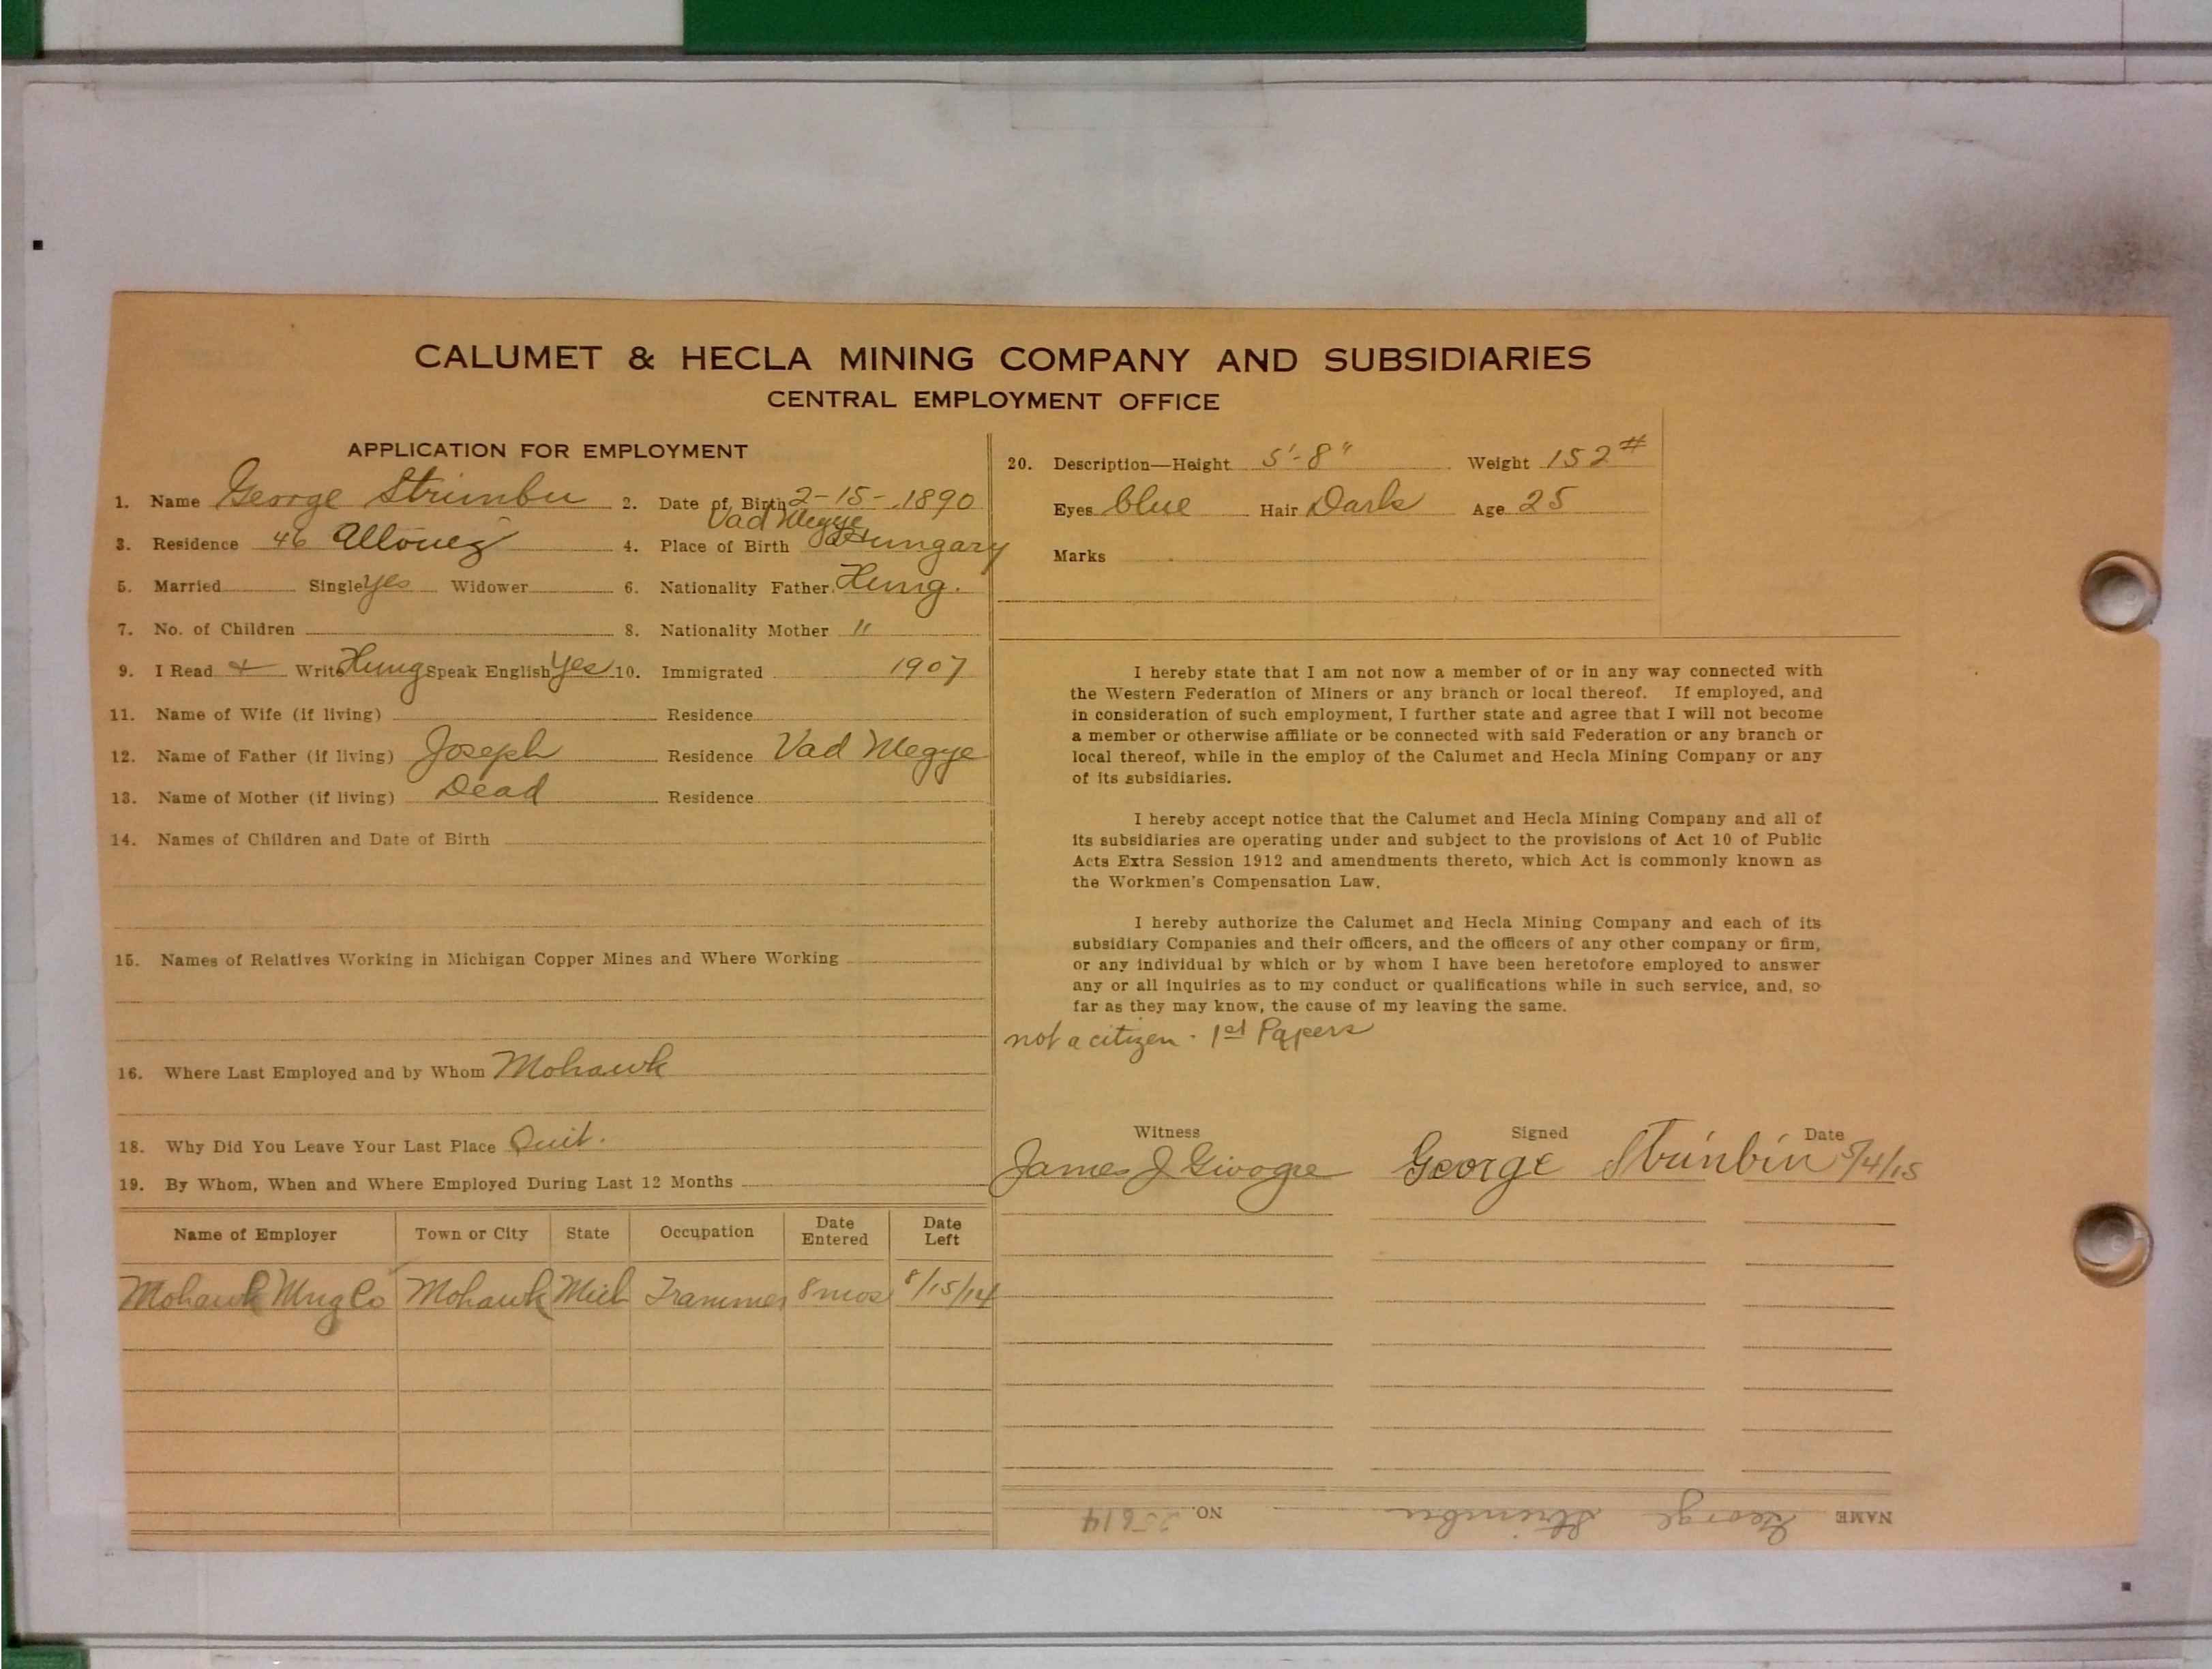 CALUMET & HECLA MINING COMPANY AND SUBSIDIARIES
CENTRAL EMPLOYMENT OFFICE
APPLICATION FOR EMPLOYMENT
1. Name George Strimbu 2. Date of Birth 2-15-1890
Vad Megye
3. Residence 46 Allouez 4. Place of Birth Hungary
5. Married Single yes Widower 6. Nationality Father Hung.
7. No. of Children 8. Nationality Mother "
9. I Read + Write Hung Speak English Yes 10. Immigrated 1907
11. Name of Wife (if living) Residence
12. Name of Father (if living) Joseph Residence Vad Megye
13. Name of Mother (if living) Dead Residence
14. Names of Children and Date of Birth
15. Names of Relatives Working in Michigan Copper Mines and Where Working
16. Where Last Employed and by Whom Mohawk
18. Why Did You Leave Your Last Place Quit.
19. By Whom, When and Where Employed During Last 12 Months
Name of Employer Town or City State Occupation Date Entered Date Left
Mohawk Mng Co Mohawk Mich Trammer 8 mos 8/15/14
20. Description—Height 5'-8" Weight 152#
Eyes blue Hair Dark Age 25
Marks
I hereby state that I am not now a member of or in any way connected with
the Western Federation of Miners or any branch or local thereof. If employed, and
in consideration of such employment, I further state and agree that I will not become
a member or otherwise affiliate or be connected with said Federation or any branch or
local thereof, while in the employ of the Calumet and Hecla Mining Company or any
of its subsidiaries.
I hereby accept notice that the Calumet and Hecla Mining Company and all of
its subsidiaries are operating under and subject to the provisions of Act 10 of Public
Acts Extra Session 1912 and amendments thereto, which Act is commonly known as
the Workmen's Compensation Law.
I hereby authorize the Calumet and Hecla Mining Company and each of its
subsidiary Companies and their officers, and the officers of any other company or firm,
or any individual by which or by whom I have been heretofore employed to answer
any or all inquiries as to my conduct or qualifications while in such service, and, so
far as they may know, the cause of my leaving the same.
not a citizen - 1st Papers
Witness Signed Date
James J George Strinbin 5/4/15
NAME George Strimbu NO. 25614